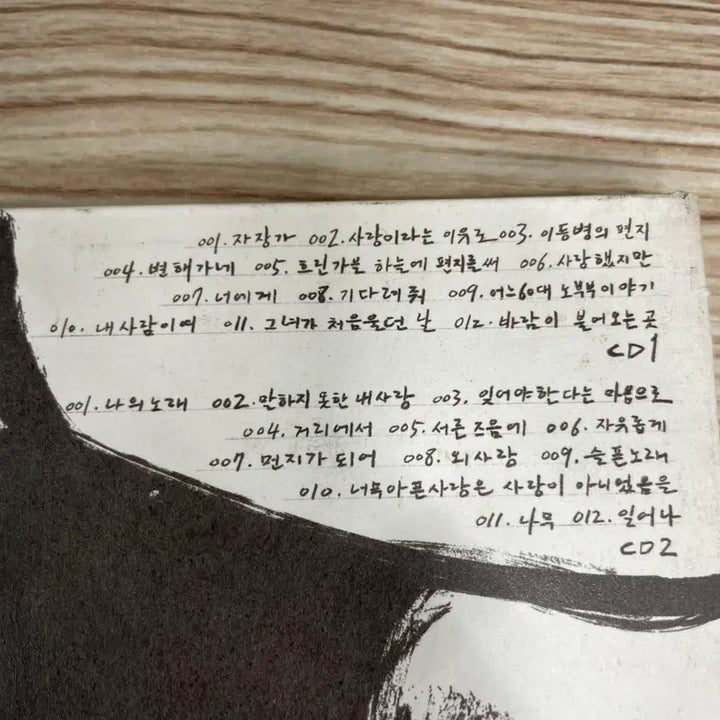 001. 자장가 002. 사랑이라는 이유로 003. 이등병의 편지
004. 변해가네 005. 흐린가을 하늘에 편지를써 006. 사랑했지만
007. 너에게 008. 기다려줘 009. 어느60대 노부부이야기
010. 내사람이여 011. 그녀가 처음울던 날 012. 바람이 불어오는 곳
CD1
001. 나의노래 002. 말하지 못한 내사랑 003. 잊어야한다는 마음으로
004. 거리에서 005. 서른 즈음에 006. 자유롭게
007. 먼지가 되어 008. 외사랑 009. 슬픈노래
010. 너무아픈사랑은 사랑이 아니었음을
011. 나무 012. 일어나
CD2